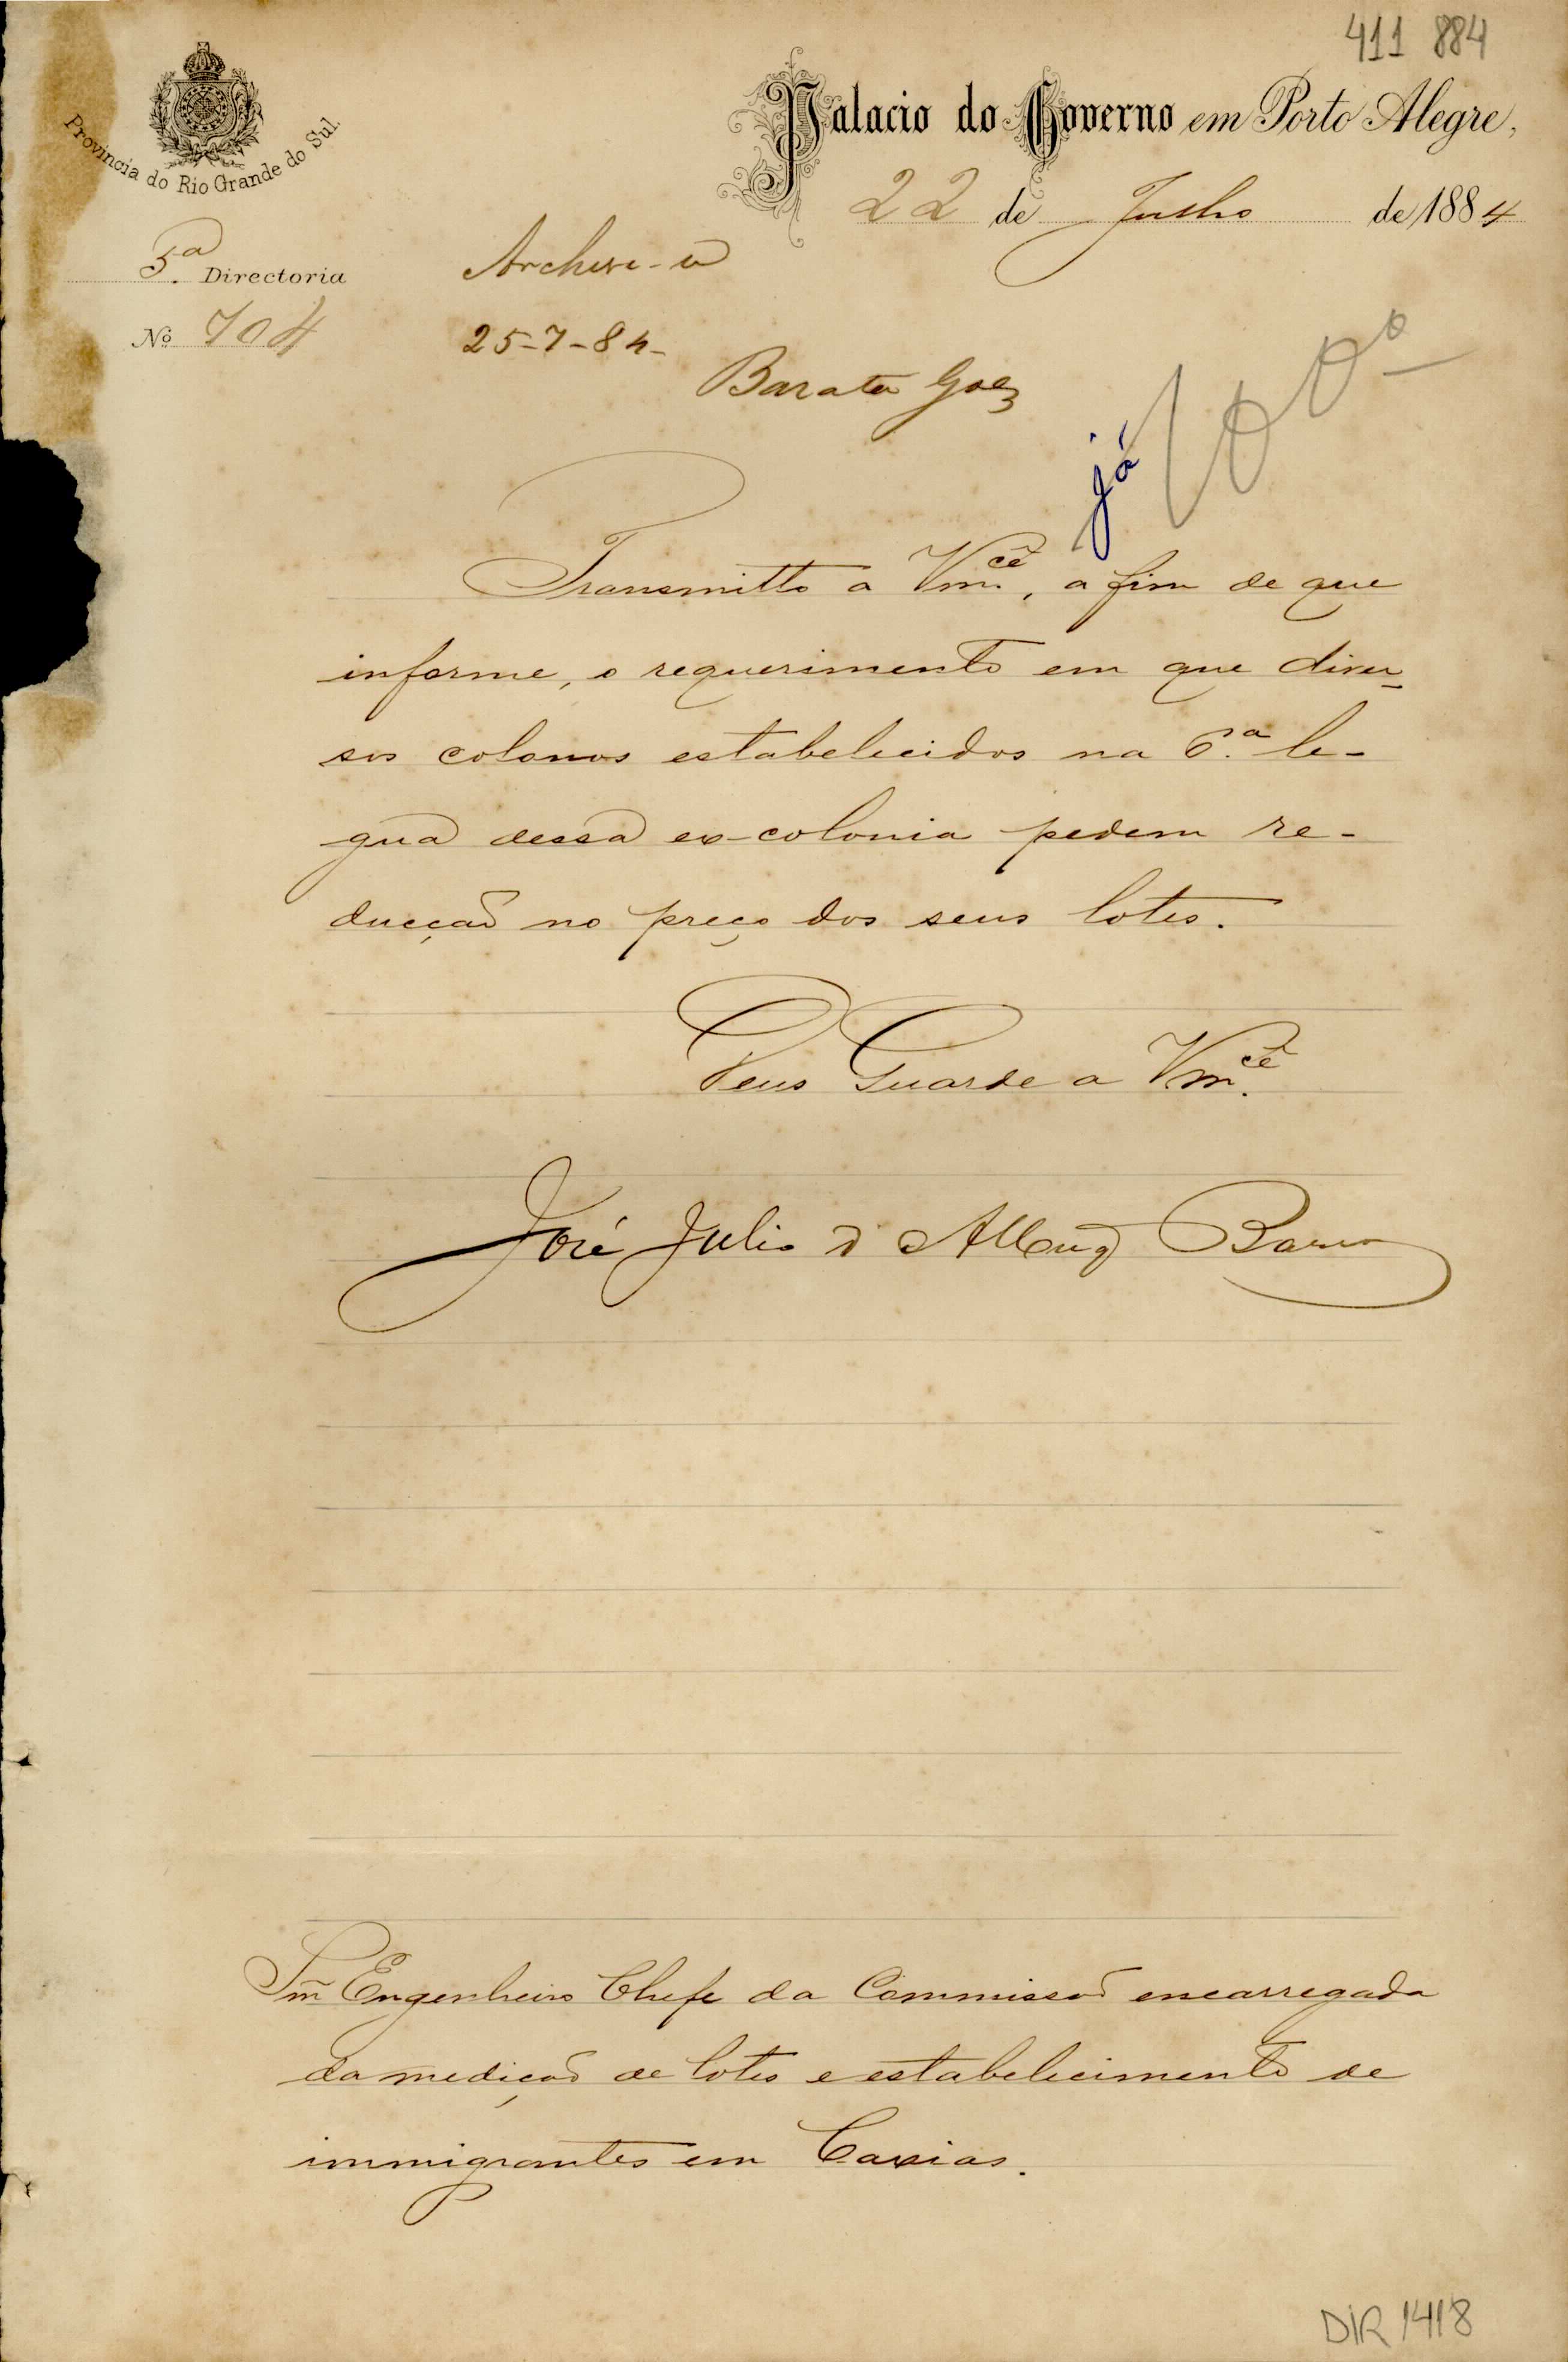 411 884
Provincia do Rio Grande do Sul
Palacio do Governo em Porto Alegre,
22 de Julho de 1884
5.ª Directoria
Nº 704
Archive-se
25-7-84-
Barata Goes
já
Transmitto a Vm.cê, a fim de que
informe, o requerimento em que diver-
sos colonos estabelecidos na 6.ª le-
gua dessa ex-colonia pedem re-
ducção no preço dos seus lotes.
Deus Guarde a Vm.cê
José Julio d' Albuq Barros
Snr Engenheiro Chefe da Commissão encarregada
da medição de lotes e estabelecimento de
immigrantes em Caxias.
DIR 1418